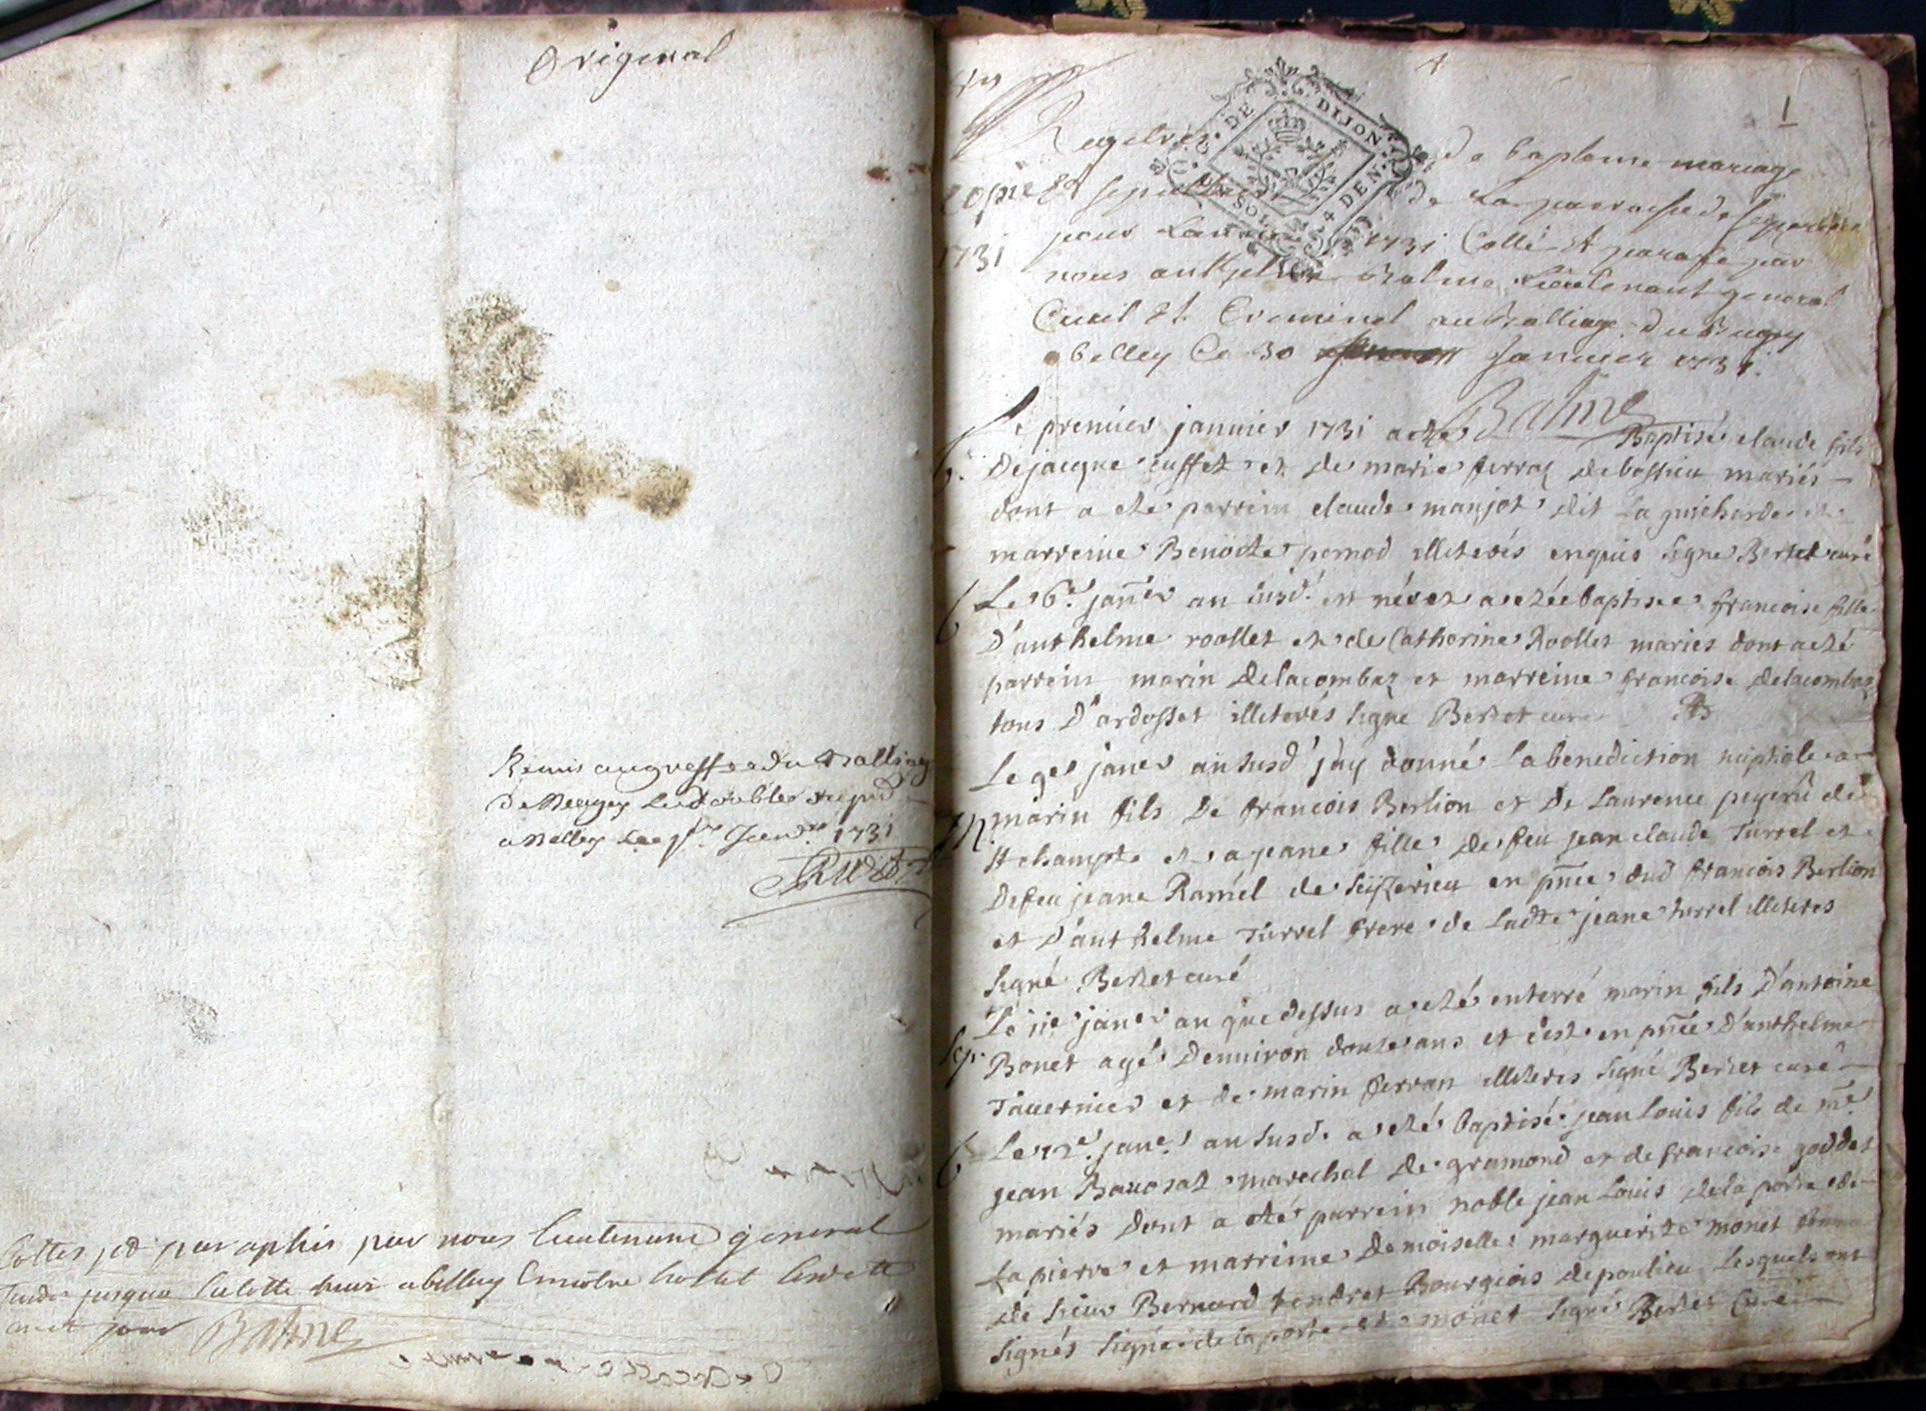 Original
Remis au greffe du Balliage
de Beugey le double du pnt
a Belley le Janv. 1731
Cottes et paraphes par nous lieutenant general
jusqua la cotte neuf a belley en notre hotel
jour Balme
1
DE DIJON
SOL 4 DEN
Registres de bapteme mariage
Copie Et sepultures de La parroisse de
1731 pour Lannee 1731 Collé Et parafé par
nous anthelme Balme Lieutenant general
Ciuil Et Creminel au Balliage du Bugey
a belley Ce 30 Januier 1731.
Balme
Le premier janvier 1731 a eté Baptisé claude fils
B. De jacque cuffet et de marie ferraz de bossieu mariés
dont a eté parrein claude manjot dit La guicharde et
marreine Benoite pernod illiterés enquis signé Bertet curé
Le 6e. janer an susd. est née et a etée baptisee francoise fille
D'anthelme roollet et de Catherine Roollet maries dont a eté
parrein marin delacombaz et marreine francoise delacombaz
tous D'ardosset illiterés signe Bertet curé
Le 9e janer an susd j'ay donné la benediction nuptiale a
M. marin fils De francois Berlion et De Laurence peyerû de
st champt et a jeane fille de feu jean claude Turrel et
De feu jeane Ramel de seizerieu en pnce dud francois Berlion
et D'anthelme Turrel frere de Ladte jeane turrel illiteres
signé Bertet curé
Le 11e janer an que dessus a eté enterré marin fils D'antoine
Sep. Bonet agé Denuiron douze ans et c'est en pnce D'anthelme
Tauernier et de marin ferran illiteres signé Bertet curé
B Le 12e. jane. an susd. a eté baptisé jean Louis fils de me
jean Bauosat marechal de gramond et de francoise goddet
mariés dont a eté parrein noble jean Louis dela porte de
La pierre et marreine Demoiselle marguerite monet
de sieur Bernard tendret Bourgeois de poulieu Lesquels ont
signés signé de la porte et monet signé Bertet Curé